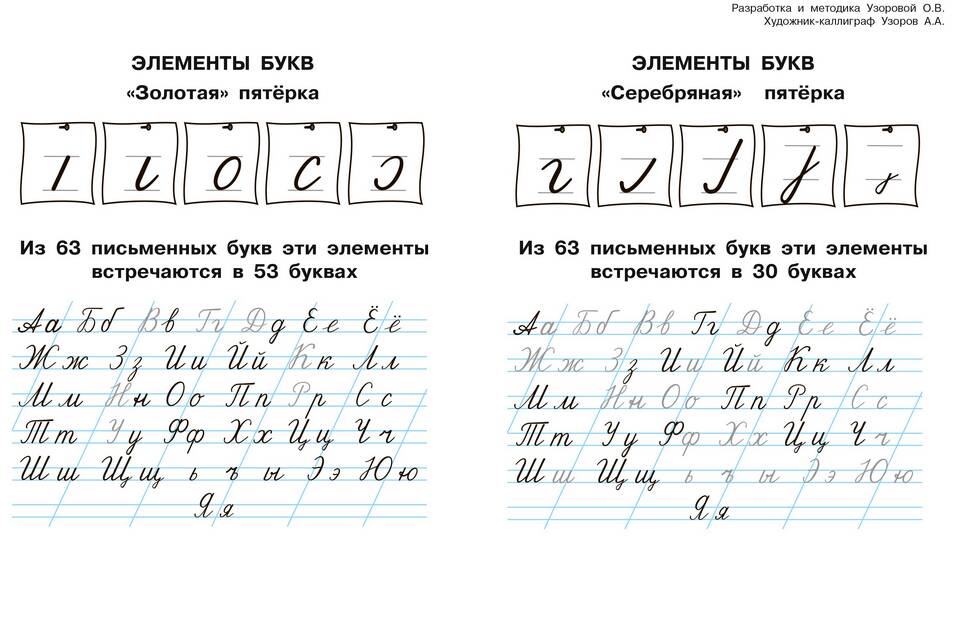 Разработка и методика Узоровой О.В.
Художник-каллиграф Узоров А.А.
ЭЛЕМЕНТЫ БУКВ
«Золотая» пятёрка
Из 63 письменных букв эти элементы
встречаются в 53 буквах
Аа Бб Вв Гг Дд Ее Ёё
Жж Зз Ии Йй Кк Лл
Мм Нн Оо Пп Рр Сс
Тт Уу Фф Хх Цц Чч
Шш Щщ ь ъ ы Ээ Юю
Яя
ЭЛЕМЕНТЫ БУКВ
«Серебряная» пятёрка
Из 63 письменных букв эти элементы
встречаются в 30 буквах
Аа Бб Вв Гг Дд Ее Ёё
Жж Зз Ии Йй Кк Лл
Мм Нн Оо Пп Рр Сс
Тт Уу Фф Хх Цц Чч
Шш Щщ ь ъ ы Ээ Юю
Яя